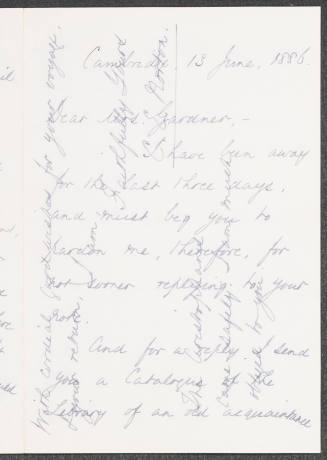 Cambridge, 13 June, 1886.
Dear Mrs. Gardner, -
I have been away
for the last three days,
and must beg you to
pardon me, therefore, for
not sooner replying to your
note.
And for a reply I send
you a Catalogue of the
Library of an old acquaintance
came safely
stayed to you
With cordial good wishes for your voyage
your return,
I am Faithfully Yours
C. E. Norton.